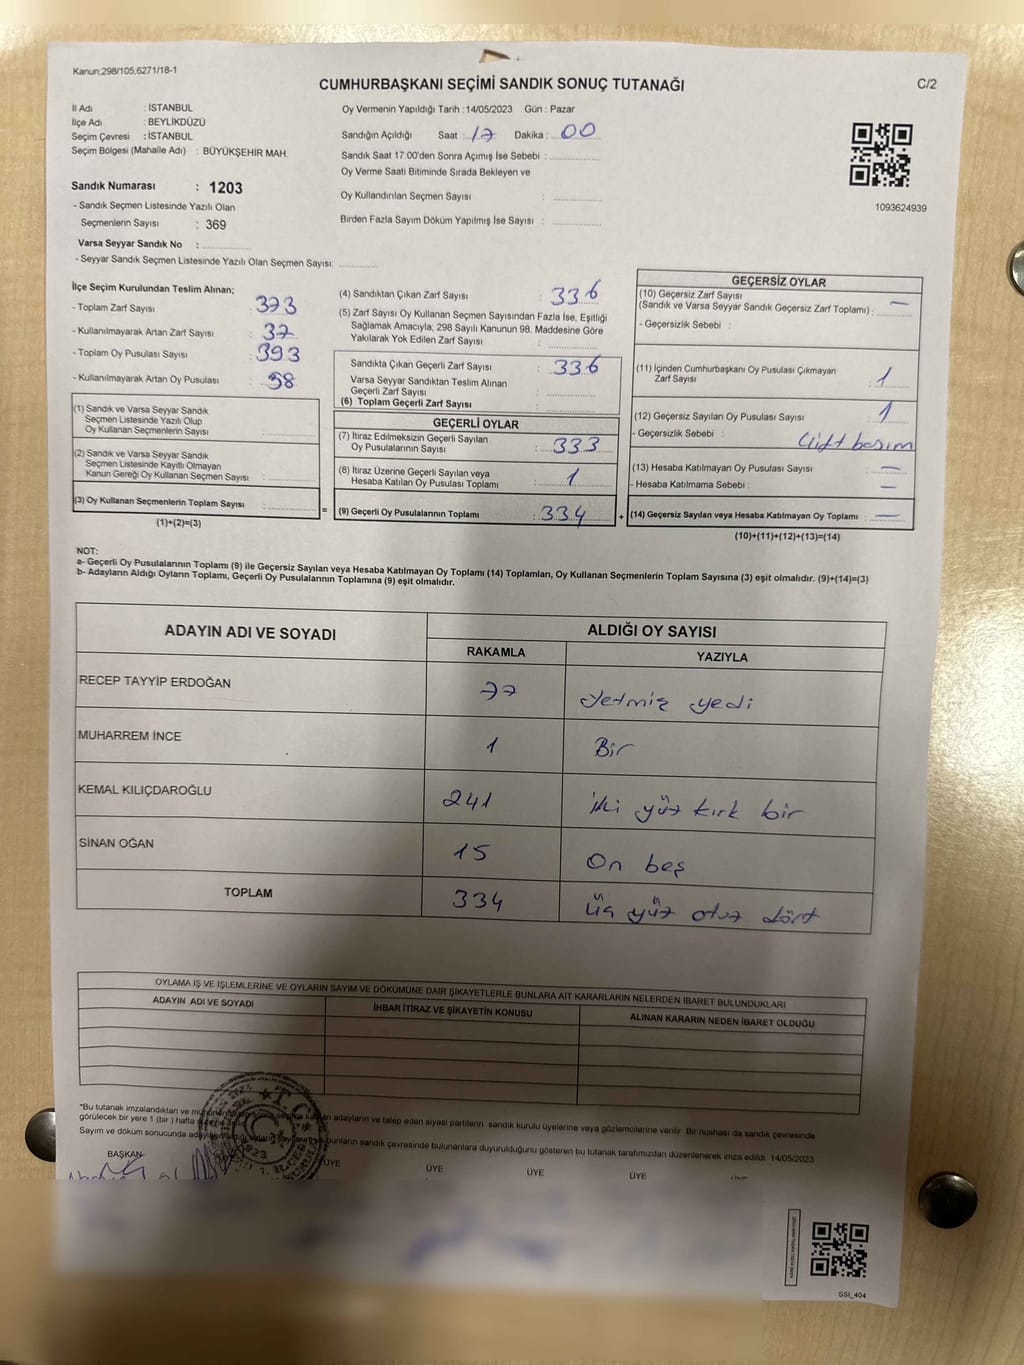 Kanun;298/105;6271/18-1
CUMHURBAŞKANI SEÇİMİ SANDIK SONUÇ TUTANAĞI
C/2
İl Adı : İSTANBUL
İlçe Adı : BEYLİKDÜZÜ
Seçim Çevresi : İSTANBUL
Seçim Bölgesi (Mahalle Adı) : BÜYÜKŞEHİR MAH.
Sandık Numarası : 1203
- Sandık Seçmen Listesinde Yazılı Olan
Seçmenlerin Sayısı : 369
Varsa Seyyar Sandık No :
- Seyyar Sandık Seçmen Listesinde Yazılı Olan Seçmen Sayısı:
Oy Vermenin Yapıldığı Tarih : 14/05/2023 Gün : Pazar
Sandığın Açıldığı Saat : 17 Dakika : 00
Sandık Saat 17:00'den Sonra Açımış İse Sebebi :
Oy Verme Saati Bitiminde Sırada Bekleyen ve
Oy Kullandırılan Seçmen Sayısı :
Birden Fazla Sayım Döküm Yapılmış İse Sayısı :
1093624939
İlçe Seçim Kurulundan Teslim Alınan;
- Toplam Zarf Sayısı : 373
- Kullanılmayarak Artan Zarf Sayısı : 37
- Toplam Oy Pusulası Sayısı : 393
- Kullanılmayarak Artan Oy Pusulası : 58
(1) Sandık ve Varsa Seyyar Sandık
Seçmen Listesinde Yazılı Olup
Oy Kullanan Seçmenlerin Sayısı :
(2) Sandık ve Varsa Seyyar Sandık
Seçmen Listesinde Kayıtlı Olmayan
Kanun Gereği Oy Kullanan Seçmen Sayısı :
(3) Oy Kullanan Seçmenlerin Toplam Sayısı :
(1)+(2)=(3)
=
(4) Sandıktan Çıkan Zarf Sayısı : 336
(5) Zarf Sayısı Oy Kullanan Seçmen Sayısından Fazla İse, Eşitliği
Sağlamak Amacıyla, 298 Sayılı Kanunun 98. Maddesine Göre
Yakılarak Yok Edilen Zarf Sayısı :
Sandıkta Çıkan Geçerli Zarf Sayısı : 336
Varsa Seyyar Sandıktan Teslim Alınan
Geçerli Zarf Sayısı :
(6) Toplam Geçerli Zarf Sayısı :
GEÇERLİ OYLAR
(7) İtiraz Edilmeksizin Geçerli Sayılan
Oy Pusulalarının Sayısı : 333
(8) İtiraz Üzerine Geçerli Sayılan veya
Hesaba Katılan Oy Pusulası Toplamı : 1
(9) Geçerli Oy Pusulalarının Toplamı : 334
+
GEÇERSİZ OYLAR
(10) Geçersiz Zarf Sayısı
(Sandık ve Varsa Seyyar Sandık Geçersiz Zarf Toplamı) : —
- Geçersizlik Sebebi :
(11) İçinden Cumhurbaşkanı Oy Pusulası Çıkmayan
Zarf Sayısı : 1
(12) Geçersiz Sayılan Oy Pusulası Sayısı : 1
- Geçersizlik Sebebi : Çift basım
(13) Hesaba Katılmayan Oy Pusulası Sayısı : —
- Hesaba Katılmama Sebebi : —
(14) Geçersiz Sayılan veya Hesaba Katılmayan Oy Toplamı : —
(10)+(11)+(12)+(13)=(14)
NOT:
a- Geçerli Oy Pusulalarının Toplamı (9) ile Geçersiz Sayılan veya Hesaba Katılmayan Oy Toplamı (14) Toplamları, Oy Kullanan Seçmenlerin Toplam Sayısına (3) eşit olmalıdır. (9)+(14)=(3)
b- Adayların Aldığı Oyların Toplamı, Geçerli Oy Pusulalarının Toplamına (9) eşit olmalıdır.
ADAYIN ADI VE SOYADI
ALDIĞI OY SAYISI
RAKAMLA YAZIYLA
RECEP TAYYİP ERDOĞAN 77 Yetmiş yedi
MUHARREM İNCE 1 Bir
KEMAL KILIÇDAROĞLU 241 İki yüz kırk bir
SİNAN OĞAN 15 On beş
TOPLAM 334 Üç yüz otuz dört
OYLAMA İŞ VE İŞLEMLERİNE VE OYLARIN SAYIM VE DÖKÜMÜNE DAİR ŞİKAYETLERLE BUNLARA AİT KARARLARIN NELERDEN İBARET BULUNDUKLARI
ADAYIN ADI VE SOYADI İHBAR İTİRAZ VE ŞİKAYETİN KONUSU ALINAN KARARIN NEDEN İBARET OLDUĞU
*Bu tutanak imzalandıktan ve adayların ve talep eden siyasi partilerin sandık kurulu üyelerine veya gözlemcilerine verilir. Bir nüshası da sandık çevresinde
görülecek bir yere 1 (bir ) hafta
Sayım ve döküm sonucunda bunların sandık çevresinde bulunanlara duyurulduğunu gösteren bu tutanak tarafımızdan düzenlenerek imza edildi. 14/05/2023
BAŞKAN ÜYE ÜYE ÜYE ÜYE
SSİ_404